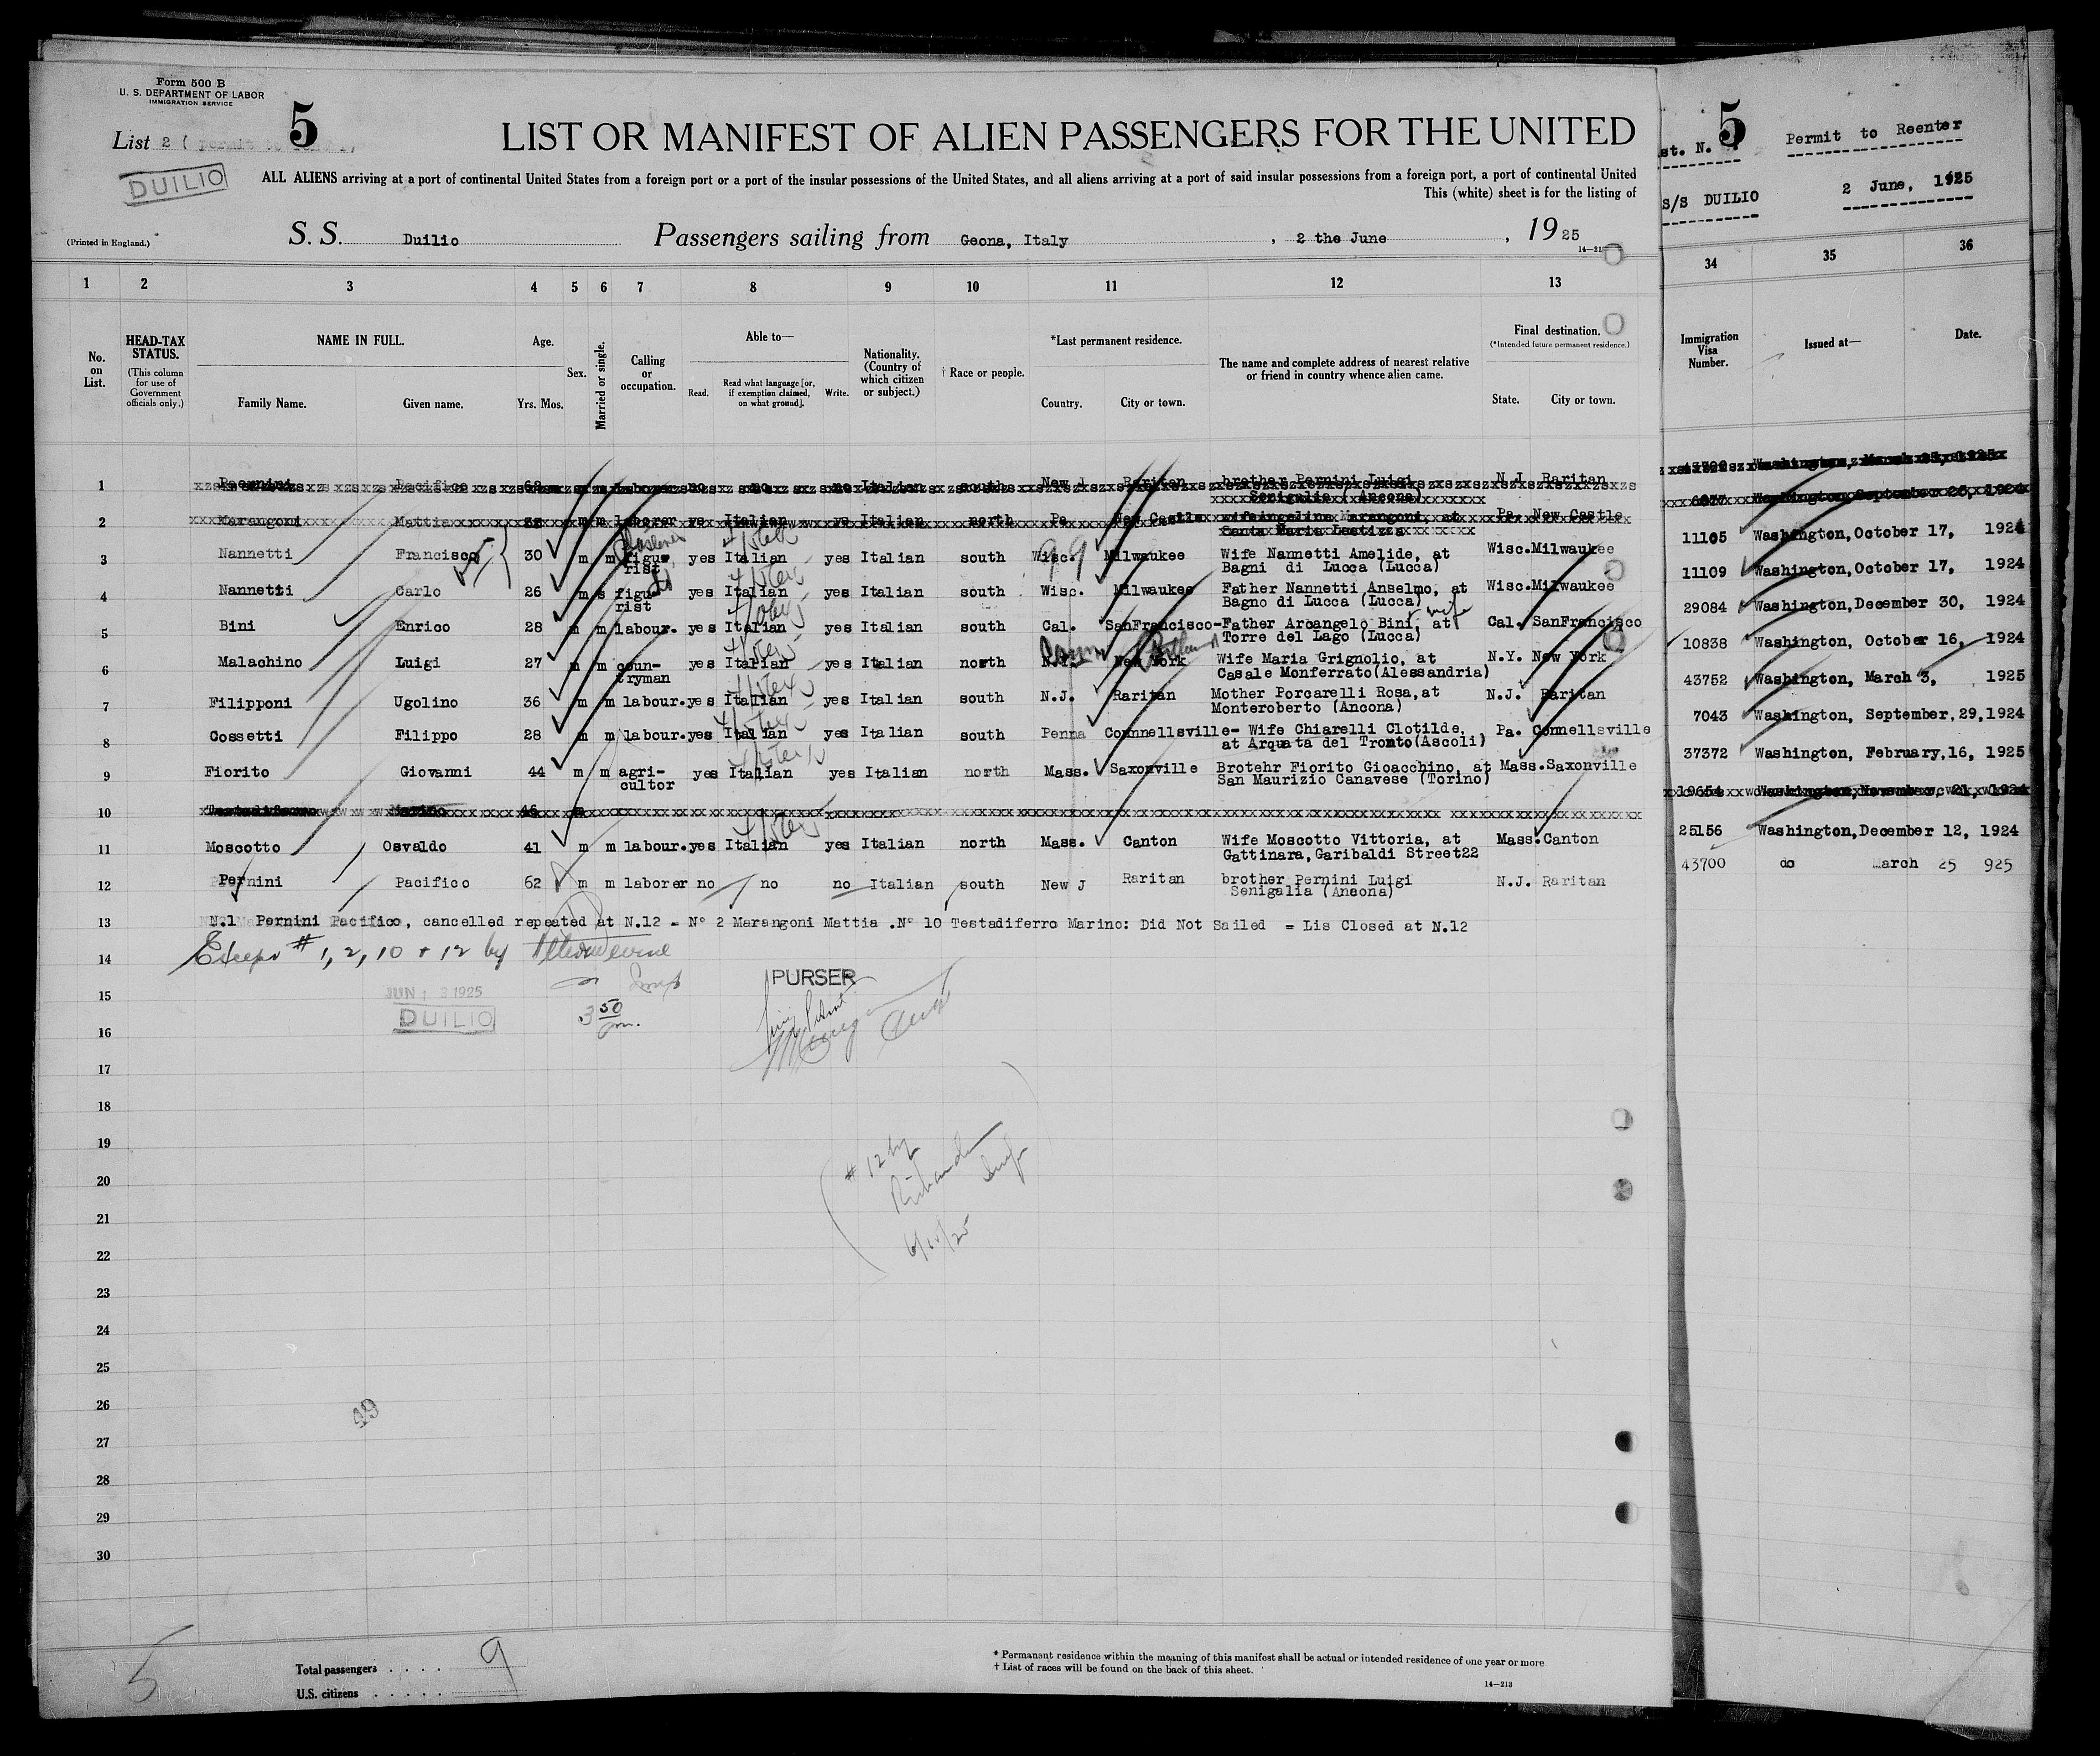 Form 500 B
U. S. DEPARTMENT OF LABOR
IMMIGRATION SERVICE
List 2 ( permit to
5
DUILIO
LIST OR MANIFEST OF ALIEN PASSENGERS FOR THE UNITED
ALL ALIENS arriving at a port of continental United States from a foreign port or a port of the insular possessions of the United States, and all aliens arriving at a port of said insular possessions from a foreign port, a port of continental United
This (white) sheet is for the listing of
(Printed in England.)
S. S. Duilio Passengers sailing from Geona, Italy , 2 the June , 19 25
5
st. N. Permit to Reenter
S/S DUILIO 2 June, 1925
1 2 3 4 5 6 7 8 9 10 11 12 13 34 35 36
No. on List.
HEAD-TAX STATUS.
(This column for use of Government officials only.)
NAME IN FULL.
Family Name. Given name.
Age.
Yrs. Mos.
Sex.
Married or single.
Calling or occupation.
Able to—
Read. Read what language [or, if exemption claimed, on what ground]. Write.
Nationality. (Country of which citizen or subject.)
† Race or people.
*Last permanent residence.
Country. City or town.
The name and complete address of nearest relative or friend in country whence alien came.
Final destination.
(*Intended future permanent residence.)
State. City or town.
Immigration Visa Number.
Issued at—
Date.
1 Pacifico 62 no no no Italian south New J Raritan brother Pernini Luigi Senigalia (Ancona) N J Raritan Washington, March 25, 1925
2 Marangoni Mattia m m laborer ye Italian ye Italian north Pa New Castle Marangoni, at Pa. New Castle Washington, September 25, 1924
3 Nannetti Francisco 30 m m figurist yes Italian yes Italian south Wisc. Milwaukee Wife Nannetti Amelide, at Bagni di Lucca (Lucca) Wisc. Milwaukee 11105 Washington, October 17, 1924
4 Nannetti Carlo 26 m s figurist yes Italian yes Italian south Wisc. Milwaukee Father Nannetti Anselmo, at Bagno di Lucca (Lucca) Wisc. Milwaukee 11109 Washington, October 17, 1924
5 Bini Enrico 28 m m labour. yes Italian yes Italian south Cal. SanFrancisco- Father Arcangelo Bini, at wife Torre del Lago (Lucca) Cal. SanFrancisco 29084 Washington, December 30, 1924
6 Malachino Luigi 27 m m countryman yes Italian yes Italian north N.Y. New York Conn Wife Maria Grignolio, at Casale Monferrato(Alessandria) N.Y. New York 10838 Washington, October 16, 1924
7 Filipponi Ugolino 36 m m labour. yes Italian yes Italian south N.J. Raritan Mother Porcarelli Rosa, at Monteroberto (Ancona) N.J. Raritan 43752 Washington, March 3, 1925
8 Cossetti Filippo 28 m m labour. yes Italian yes Italian south Penna Connnellsville- Wife Chiarelli Clotilde, at Arquata del Tronto(Ascoli) Pa. Connellsville 7043 Washington, September, 29, 1924
9 Fiorito Giovanni 44 m m agri-cultor yes Italian yes Italian north Mass. Saxonville Brotehr Fiorito Gioacchino, at San Maurizio Canavese (Torino) Mass. Saxonville 37372 Washington, February, 16, 1925
10 Testadiferro Marino 46 m 19654 Washington, November, 21, 1924
11 Moscotto Osvaldo 41 m m labour. yes Italian yes Italian north Mass. Canton Wife Moscotto Vittoria, at Gattinara, Garibaldi Street22 Mass. Canton 25156 Washington, December 12, 1924
12 Pernini Pacifico 62 m m laborer no no no Italian south New J Raritan brother Pernini Luigi Senigalia (Ancona) N.J. Raritan 43700 do March 25 925
13 N.1 Pernini Pacifico, cancelled repeated at N.12 - N° 2 Marangoni Mattia .N° 10 Testadiferro Marino: Did Not Sailed = Lis Closed at N.12
14 Except # 1, 2, 10 + 12 by
15 JUN 13 1925 Insp PURSER
16 DUILIO 3 50 pm.
17
18
19 # 12 by
20 Insp
21
22
23
24
25
26 49
27
28
29
30
5
Total passengers . . . . 9
U.S. citizens . . . . .
* Permanent residence within the meaning of this manifest shall be actual or intended residence of one year or more
† List of races will be found on the back of this sheet.
14—213